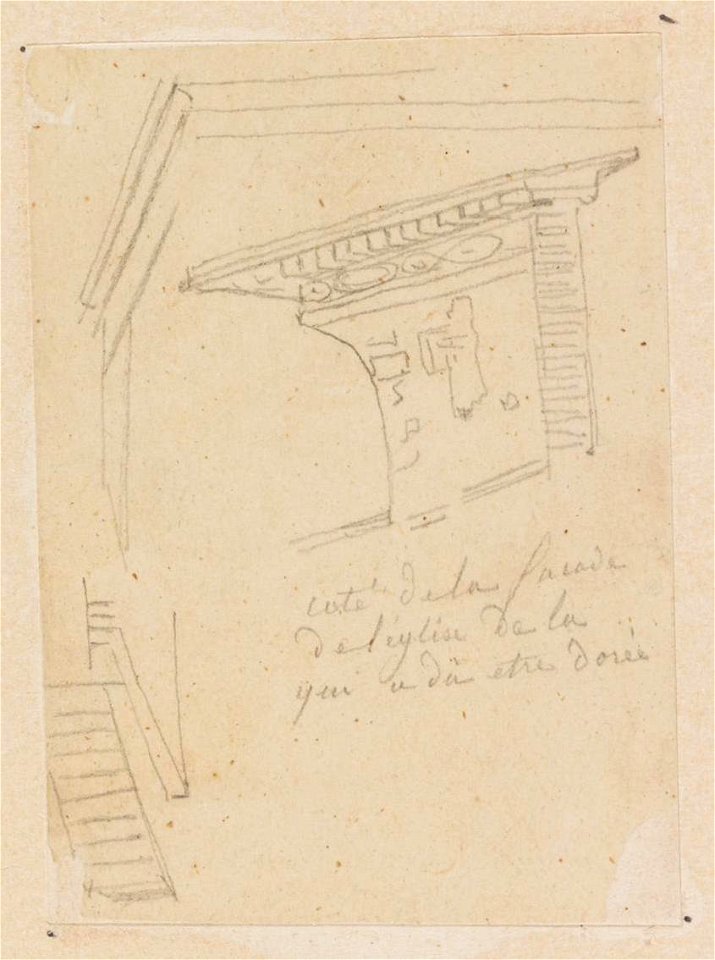 coté de la facade
de l'église de la ...
qui a dû etre dorée